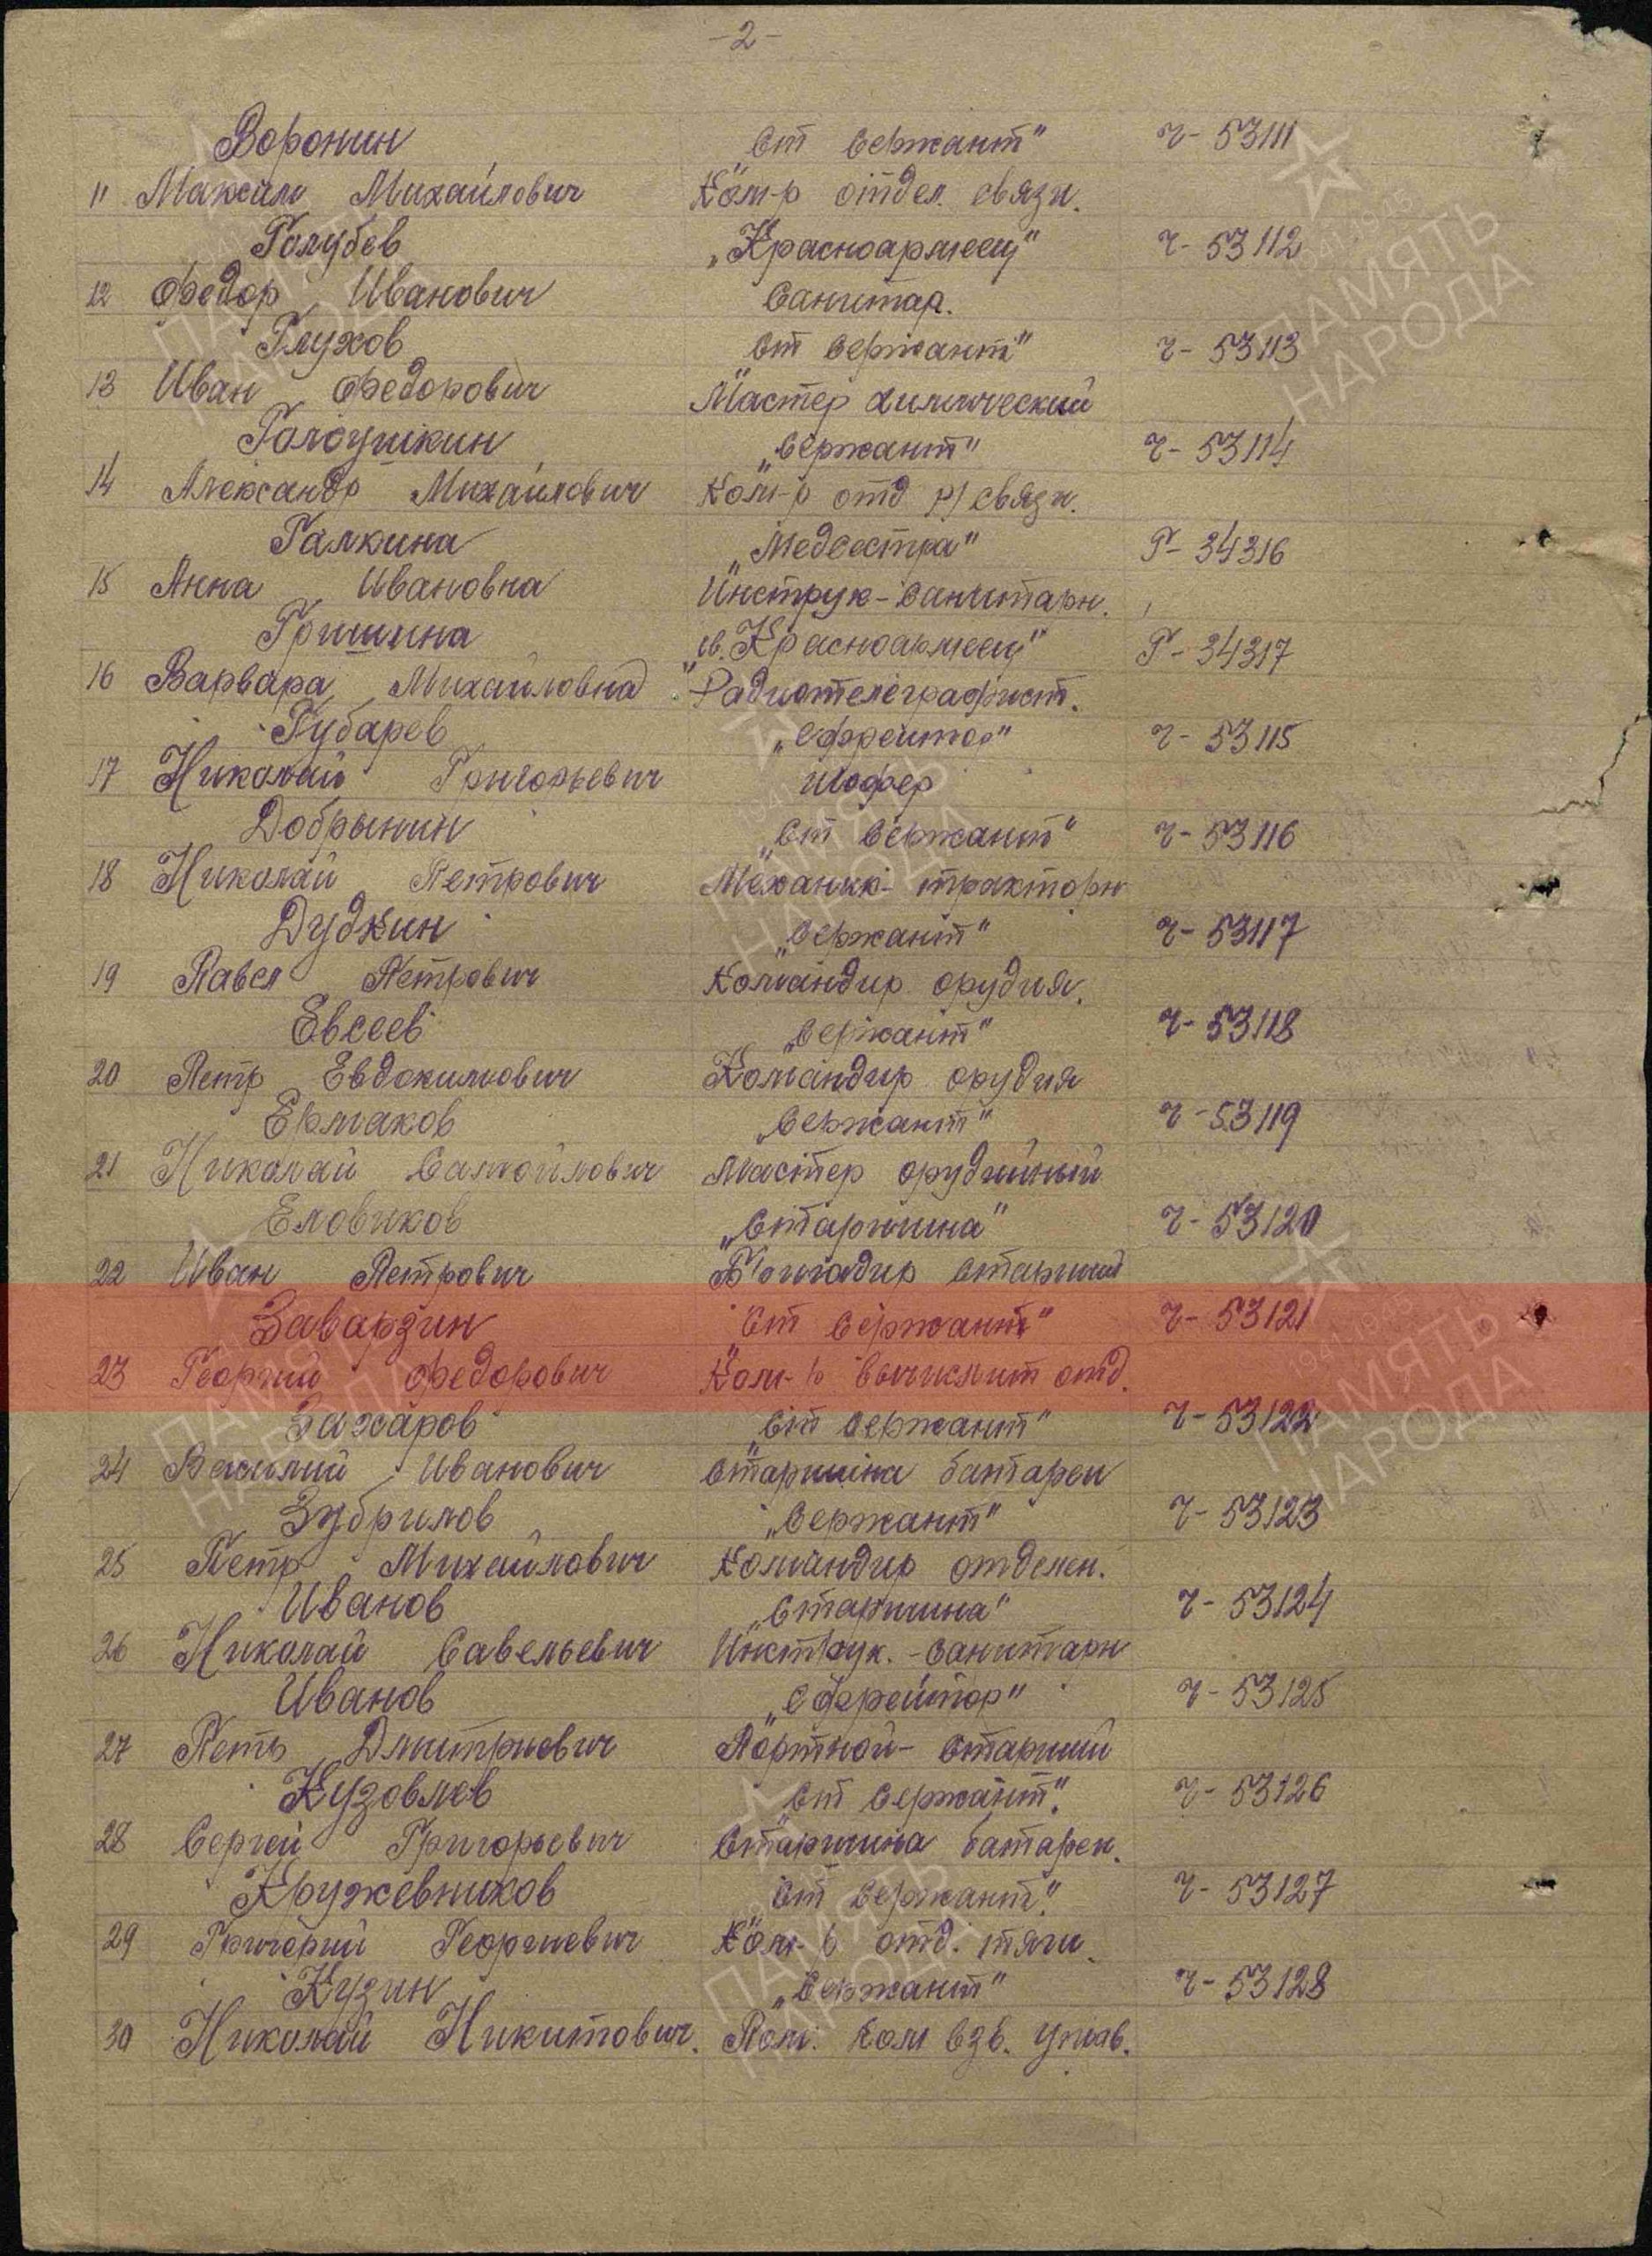 -2-
Воронин „Ст Сержант" г- 53111
11 Максим Михайлович Ком-р отдел. связи.
Голубев „Красноармеец" г- 53112
12 Федор Иванович Санитар.
Глухов „Ст Сержант" г- 53113
13 Иван Федорович Мастер химический
Голоушкин „Сержант" г- 53114
14 Александр Михайлович Ком-р отд р/связи.
Галкина „Медсестра" Г- 34316
15 Анна Ивановна Инструк-Санитарн.
Гришина „Еф. Красноармеец" Г- 34317
16 Варвара Михайловна Радиотелеграфист.
Губарев „Ефрейтор" г- 53115
17 Николай Григорьевич Шофер
Добрынин „Ст Сержант" г- 53116
18 Николай Петрович Механик- тракторн
Дудкин „Сержант" г- 53117
19 Павел Петрович Командир орудия.
Евсеев „Сержант" г- 53118
20 Петр Евдокимович Командир орудия
Ермаков „Сержант" г- 53119
21 Николай Самойлович Мастер орудийный
Еловиков „Старшина" г- 53120
22 Иван Петрович Бригадир Старший
Заварзин „Ст Сержант" г- 53121
23 Георгий Федорович Ком-р вычислит отд.
Захаров „Ст Сержант" г- 53122
24 Василий Иванович Старшина батареи
Зубрилов „Сержант" г- 53123
25 Петр Михайлович Командир отделен.
Иванов „Старшина" г- 53124
26 Николай Савельевич Инструк.-Санитарн
Иванов „Ефрейтор" г- 53125
27 Петр Дмитриевич Портной- Старший
Кузовлев „Ст Сержант". г- 53126
28 Сергей Григорьевич Старшина батареи.
Кружевников „Ст Сержант". г- 53127
29 Григорий Георгиевич Ком-р отд. тяги.
Кузин „Сержант" г- 53128
30 Николай Никитович. Пом. Ком Взв. Управ.
ПАМЯТЬ
НАРОДА
ПАМЯТЬ
НАРОДА
ПАМЯТЬ
НАРОДА
ПАМЯТЬ
НАРОДА
ПАМЯТЬ
НАРОДА
ПАМЯТЬ
НАРОДА